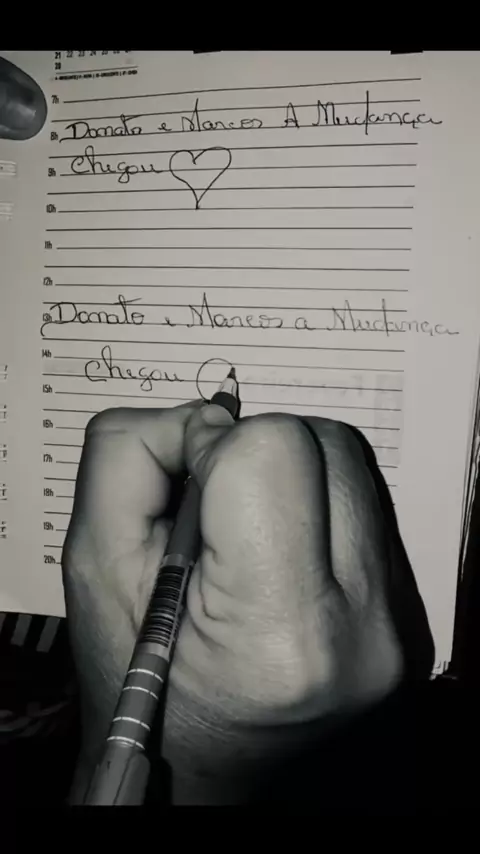 21 22 23 24 25 26 27
28
7h
8h Donato e Marcos A Mudança
9h chegou
10h
11h
12h
13h Donato e Marcos a Mudança
14h chegou
15h
16h
17h
18h
19h
20h